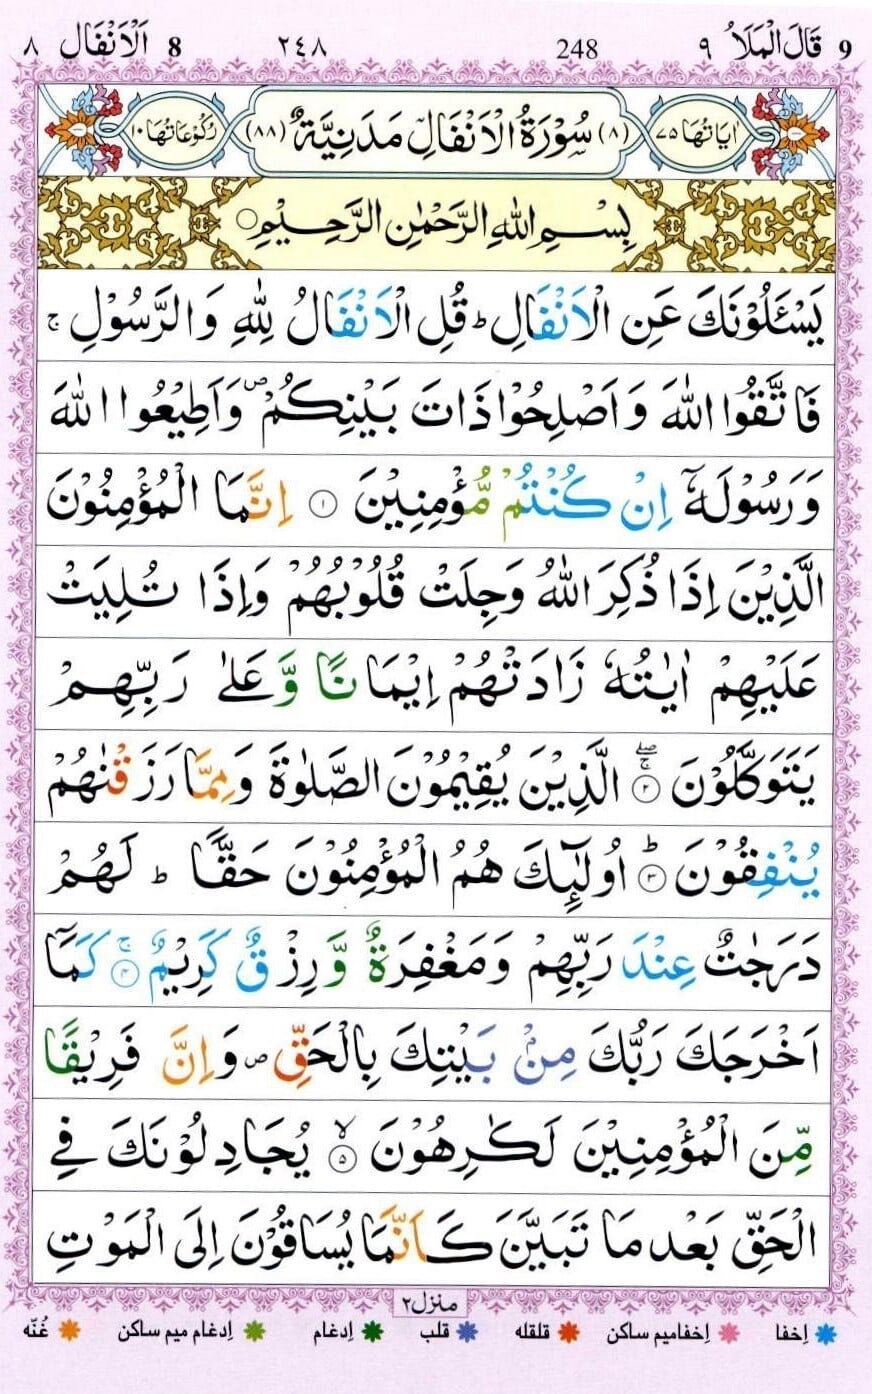 9 قَالَ الْمَلَاُ ٩ 248 ٢٤٨ 8 اَلْاَنْفَال ٨
اٰيَاتُهَا ٧٥ (٨) سُوْرَةُ الْاَنْفَالِ مَدَنِيَّةٌ (٨٨) رُكُوْعَاتُهَا ١٠
بِسْمِ اللّٰهِ الرَّحْمٰنِ الرَّحِيْمِ ○
يَسْـَٔلُوْنَكَ عَنِ الْاَنْفَالِ ؕ قُلِ الْاَنْفَالُ لِلّٰهِ وَالرَّسُوْلِ ۚ
فَاتَّقُوا اللّٰهَ وَاَصْلِحُوْا ذَاتَ بَيْنِكُمْ ۪ وَاَطِيْعُوا اللّٰهَ
وَرَسُوْلَهٗۤ اِنْ كُنْتُمْ مُّؤْمِنِيْنَ ۝۱ اِنَّمَا الْمُؤْمِنُوْنَ
الَّذِيْنَ اِذَا ذُكِرَ اللّٰهُ وَجِلَتْ قُلُوْبُهُمْ وَاِذَا تُلِيَتْ
عَلَيْهِمْ اٰيٰتُهٗ زَادَتْهُمْ اِيْمَانًا وَّعَلٰى رَبِّهِمْ
يَتَوَكَّلُوْنَ ۝۲ۚۖ الَّذِيْنَ يُقِيْمُوْنَ الصَّلٰوةَ وَمِمَّا رَزَقْنٰهُمْ
يُنْفِقُوْنَ ۝۳ؕ اُولٰٓئِكَ هُمُ الْمُؤْمِنُوْنَ حَقًّا ؕ لَهُمْ
دَرَجٰتٌ عِنْدَ رَبِّهِمْ وَمَغْفِرَةٌ وَّرِزْقٌ كَرِيْمٌ ۝۴ۚ كَمَاۤ
اَخْرَجَكَ رَبُّكَ مِنْۢ بَيْتِكَ بِالْحَقِّ ۪ وَاِنَّ فَرِيْقًا
مِّنَ الْمُؤْمِنِيْنَ لَكٰرِهُوْنَ ۝۵ۙ يُجَادِلُوْنَكَ فِى
الْحَقِّ بَعْدَ مَا تَبَيَّنَ كَاَنَّمَا يُسَاقُوْنَ اِلَى الْمَوْتِ
منزل ٢
اِخفا اِخفامیم ساکن قلقله قلب اِدغام اِدغام میم ساکن غُنّه